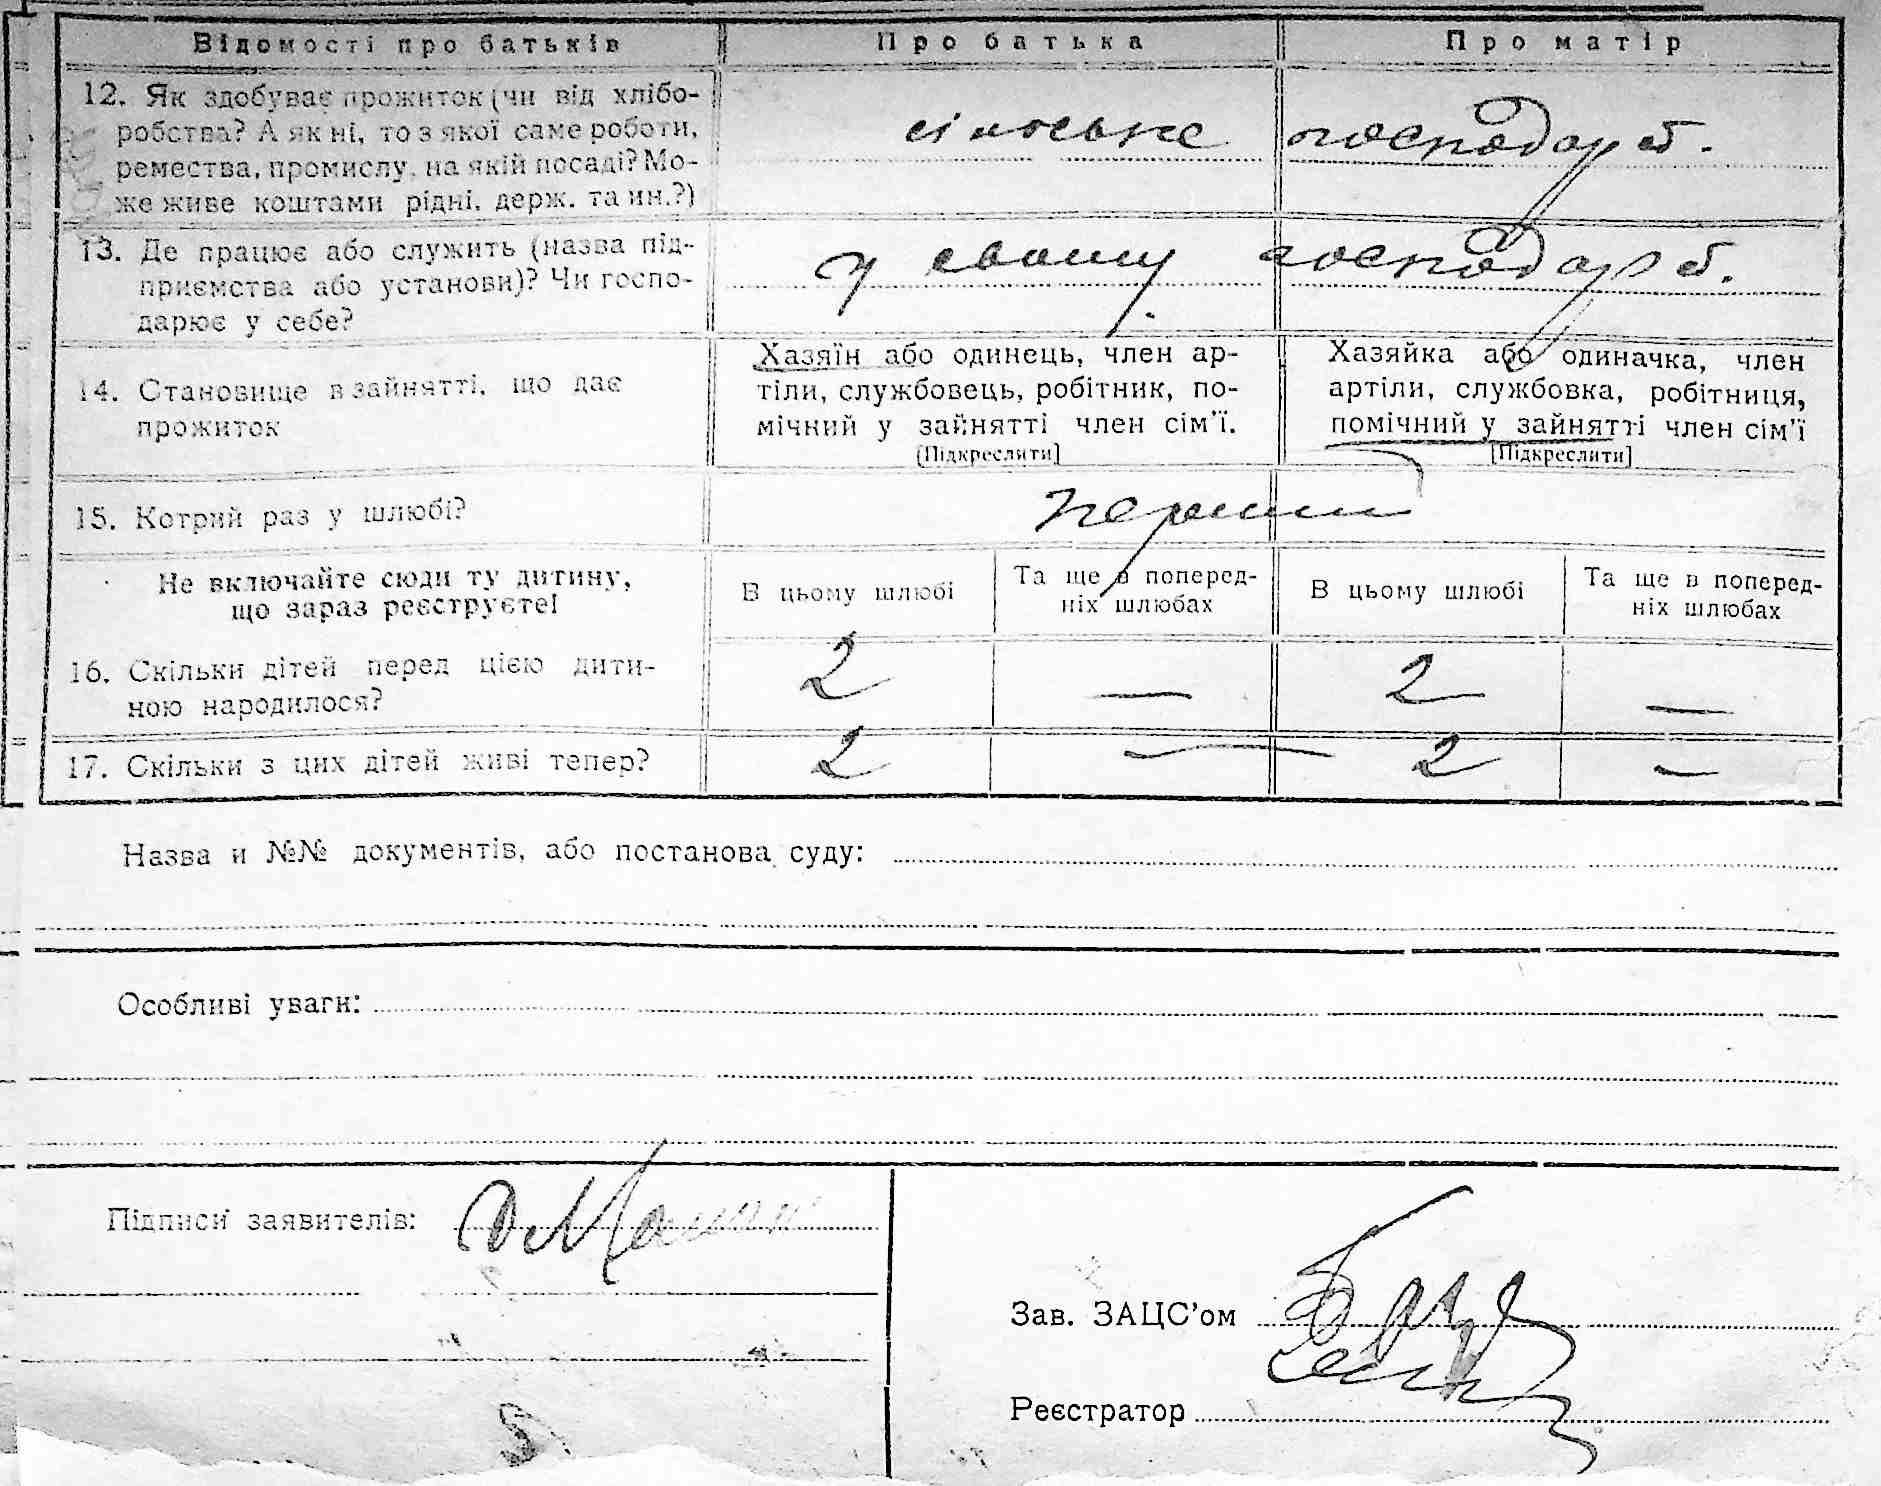 Відомості про батьків Про батька Про матір
12. Як здобуває прожиток (чи від хлібо-
робства? А як ні, то з якої саме роботи,
ремества, промислу, на якій посаді? Мо-
же живе коштами рідні, держ. та ин.?)
сільське господарст.
13. Де працює або служить (назва під-
приємства або установи)? Чи госпо-
дарює у себе?
у своєму господарст.
14. Становище в зайнятті, що дає
прожиток
Хазяїн або одинець, член ар-
тіли, службовець, робітник, по-
мічний у зайнятті член сім'ї.
[Підкреслити]
Хазяйка або одиначка, член
артіли, службовка, робітниця,
помічний у зайнятті член сім'ї
[Підкреслити]
15. Котрий раз у шлюбі?
перший
Не включайте сюди ту дитину,
що зараз реєструєте!
В цьому шлюбі
Та ще в поперед-
ніх шлюбах
В цьому шлюбі
Та ще в поперед-
ніх шлюбах
16. Скільки дітей перед цією дити-
ною народилося?
2 — 2 —
17. Скільки з цих дітей живі тепер?
2 — 2 —
Назва и №№ документів, або постанова суду:
Особливі уваги:
Підписи заявителів:
Зав. ЗАЦС'ом
Реєстратор